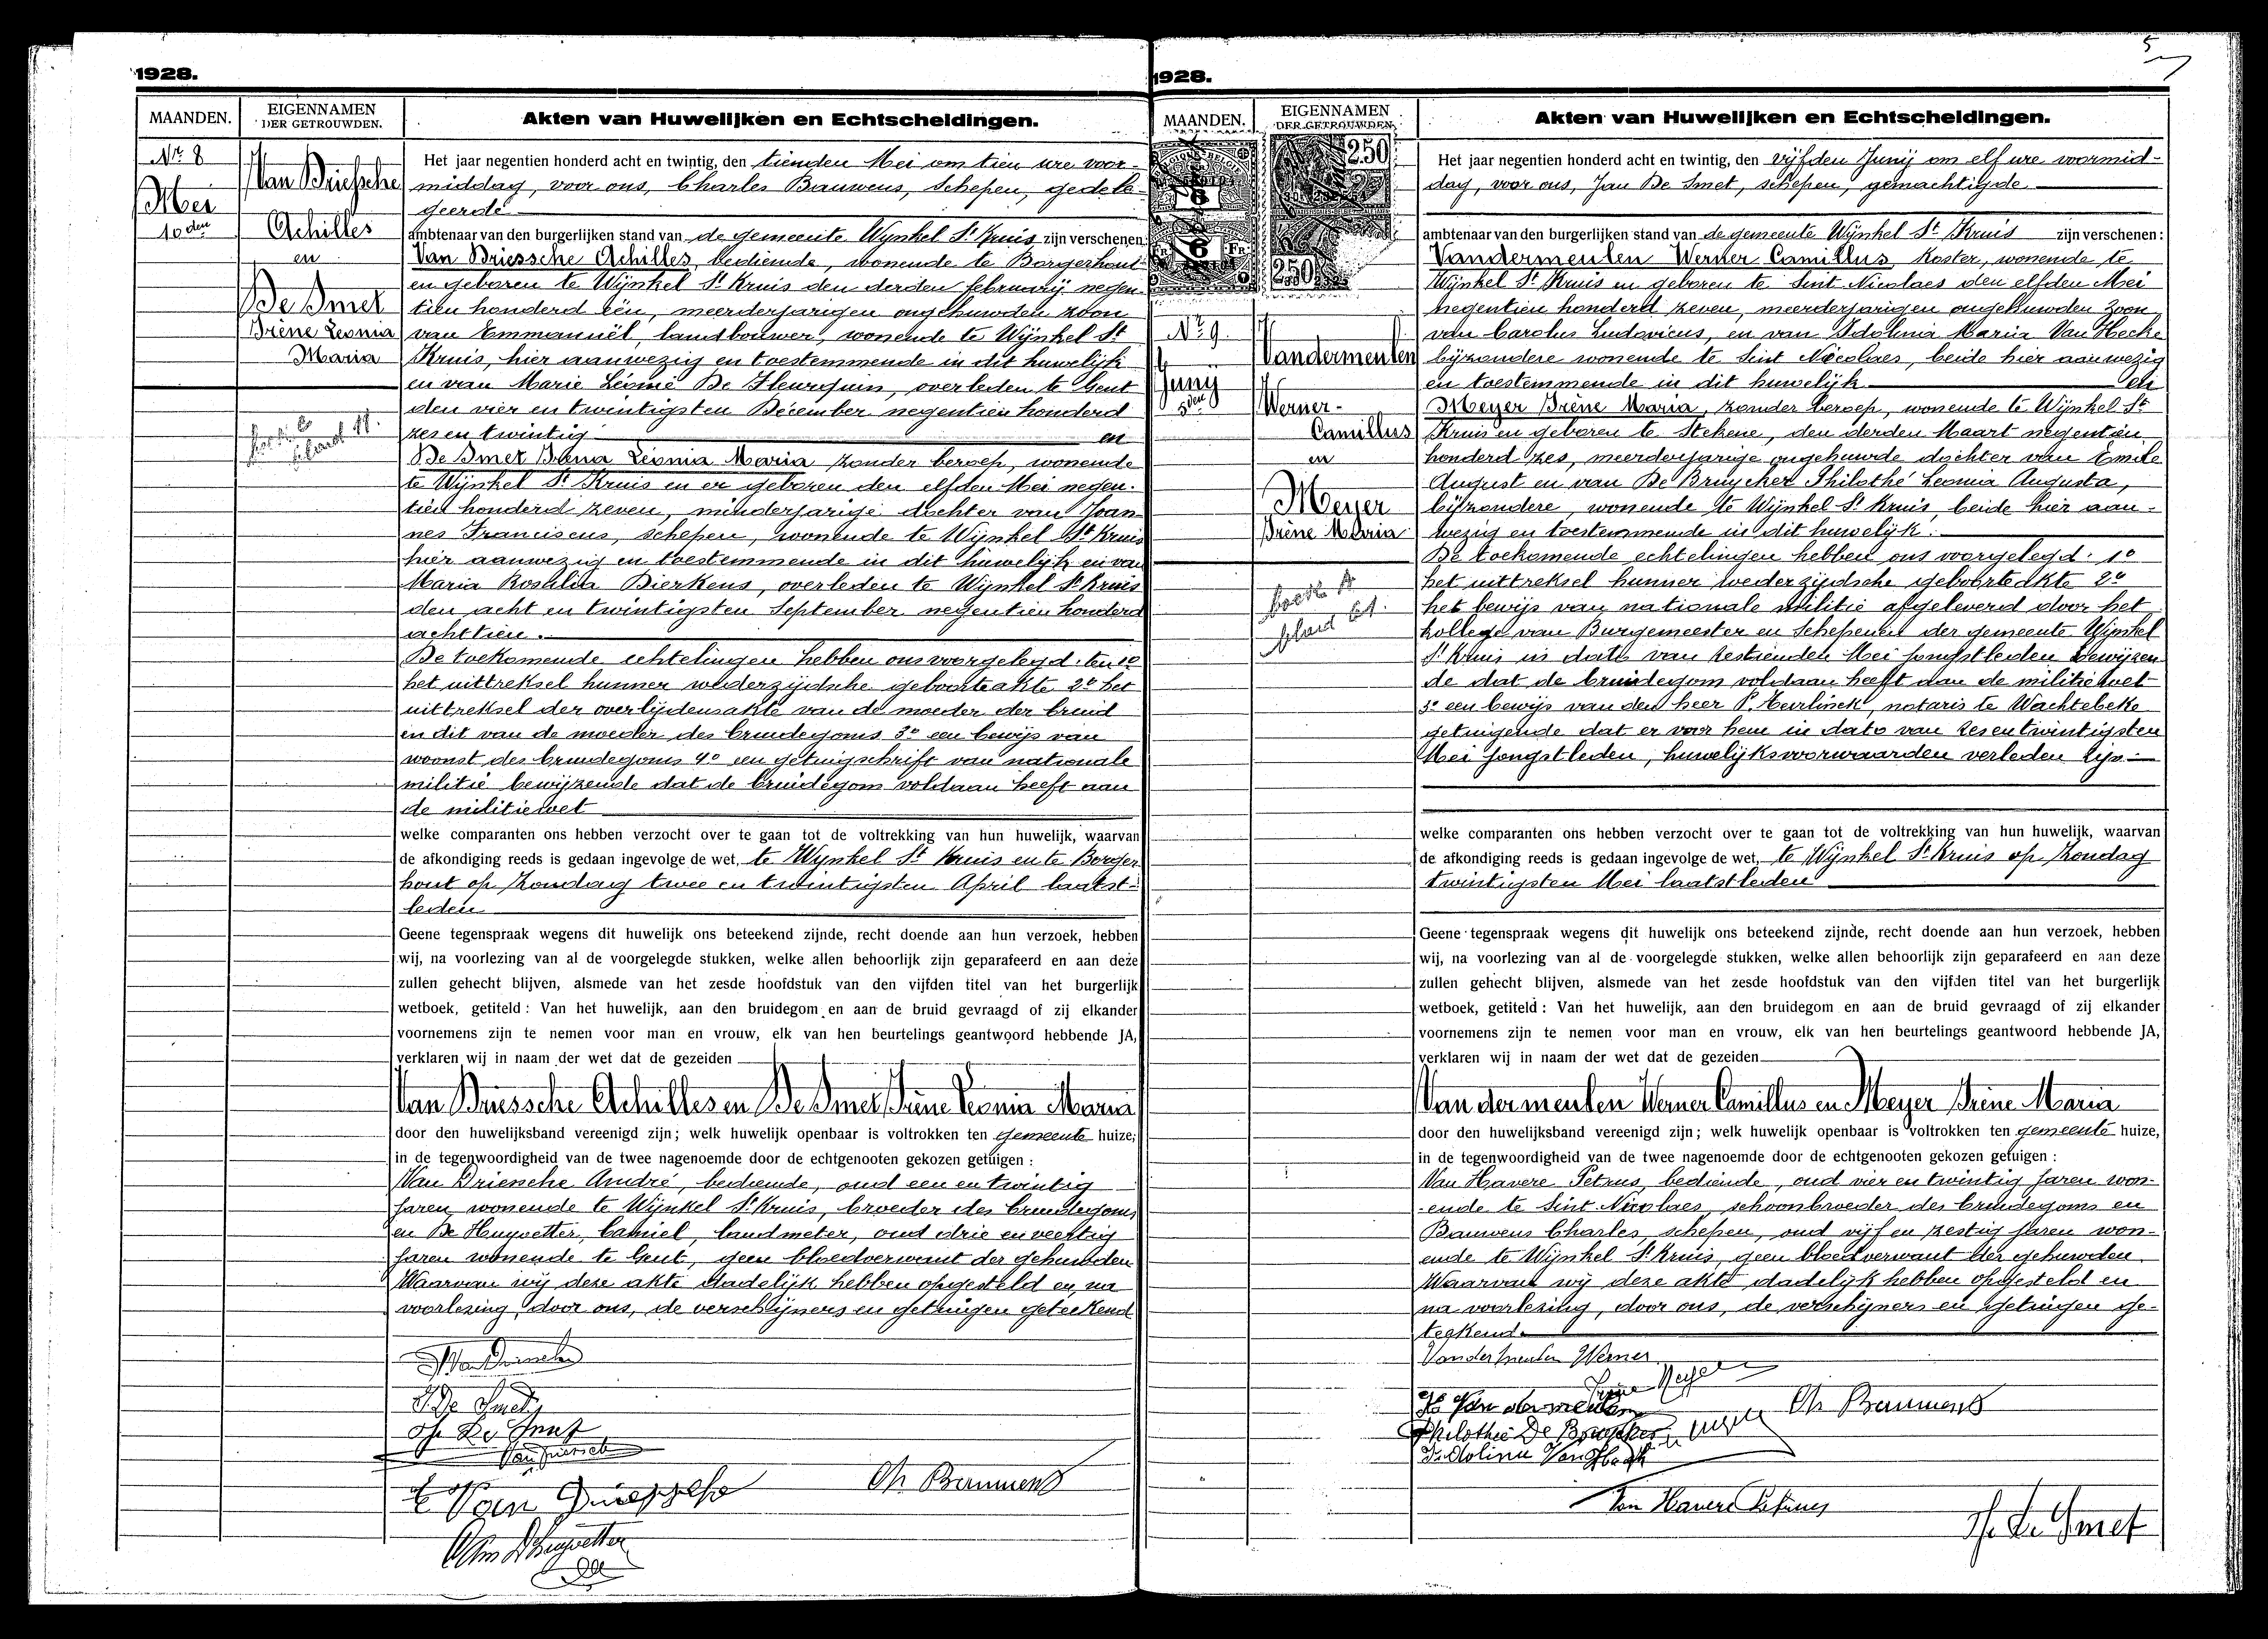 1928.
MAANDEN.
EIGENNAMEN
DER GETROUWDEN.
Akten van Huwelijken en Echtscheidingen.
Nr. 8
Mei
10den
Van Driessche
Achilles
en
De Smet
Irène Leonia
Maria
Het jaar negentien honderd acht en twintig, den tienden Mei om tien ure voor-
middag, voor ons, Charles Bauwens, Schepen, gedele-
geerde
ambtenaar van den burgerlijken stand van de gemeente Wynkel St Kruis zijn verschenen:
Van Driessche Achilles, bediende, wonende te Borgerhout
en geboren te Wijnkel St Kruis den derden februarij negen-
tien honderd één, meerderjarigen ongehuwden zoon
van Emmanuël, landbouwer, wonende te Wijnkel St
Kruis, hier aanwezig en toestemmende in dit huwelijk
en van Marie Léonie De Fleurquin, overleden te Gent
den vier en twintigsten December negentien honderd
zes en twintig en
De Smet Irena Leonia Maria zonder beroep, wonende
te Wijnkel St Kruis en er geboren den elfden Mei negen-
tien honderd zeven, minderjarige dochter van Joan-
nes Franciscus, schepen, wonende te Wijnkel St Kruis
hier aanwezig en toestemmende in dit huwelijk en van
Maria Rosalia Bierkens, overleden te Wijnkel St Kruis
den acht en twintigsten September negentien honderd
achttien.
De toekomende echtelingen hebben ons voorgelegd: ten 1o
het uittreksel hunner wederzijdsche geboorteakte 2o het
uittreksel der overlijdensakte van de moeder der bruid
en dit van de moeder des bruidegoms 3o een bewijs van
woonst des bruidegoms 4o een getuigschrift van nationale
militie bewijzende dat de bruidegom voldaan heeft aan
de militiewet
welke comparanten ons hebben verzocht over te gaan tot de voltrekking van hun huwelijk, waarvan
de afkondiging reeds is gedaan ingevolge de wet, te Wynkel St Kruis en te Borger-
hout op Zondag twee en twintigsten April laatst-
leden
Geene tegenspraak wegens dit huwelijk ons beteekend zijnde, recht doende aan hun verzoek, hebben
wij, na voorlezing van al de voorgelegde stukken, welke allen behoorlijk zijn geparafeerd en aan deze
zullen gehecht blijven, alsmede van het zesde hoofdstuk van den vijfden titel van het burgerlijk
wetboek, getiteld: Van het huwelijk, aan den bruidegom en aan de bruid gevraagd of zij elkander
voornemens zijn te nemen voor man en vrouw, elk van hen beurtelings geantwoord hebbende JA,
verklaren wij in naam der wet dat de gezeiden
Van Driessche Achilles en De Smet Irène Leonia Maria
door den huwelijksband vereenigd zijn; welk huwelijk openbaar is voltrokken ten gemeente huize,
in de tegenwoordigheid van de twee nagenoemde door de echtgenooten gekozen getuigen:
Van Driessche André, bediende, oud een en twintig
jaren, wonende te Wijnkel St Kruis, broeder des bruidegoms
en De Huyvetter, Camiel, landmeter, oud drie en veertig
jaren wonende te Gent, geen bloedverwant der gehuwden
Waarvan wij deze akte dadelijk hebben opgesteld en, na
voorlezing door ons, de verschijners en getuigen geteekend
De Smet
De Smet
Van Driessche
Ch Bauwens
E Van Driessche
Cam D'huyvetter
1928.
5
MAANDEN.
EIGENNAMEN
DER GETROUWDEN.
Akten van Huwelijken en Echtscheidingen.
250
250
Nr 9.
Junij
5den
Vandermeulen
Werner-
Camillus
en
Meyer
Irène Maria
Het jaar negentien honderd acht en twintig, den vijfden Junij om elf ure voormid-
dag, voor ons, Jan De Smet, schepen, gemachtigde
ambtenaar van den burgerlijken stand van de gemeente Wijnkel St Kruis zijn verschenen:
Vandermeulen Werner Camillus, Koster, wonende te
Wijnkel St Kruis en geboren te Sint Nicolaes den elfden Mei
negentien honderd zeven, meerderjarigen ongehuwden zoon
van Carolus Ludovicus, en van Idolina Maria Van Hecke
bijzondere wonende te Sint Nicolaes, beide hier aanwezig
en toestemmende in dit huwelijk en
Meyer Irène Maria, zonder beroep, wonende te Wijnkel St
Kruis en geboren te Stekene, den derden Maart negentien
honderd zes, meerderjarige ongehuwde dochter van Emile
August en van De Bruycker Philothé Leonia Augusta,
bijzondere, wonende te Wijnkel St Kruis, beide hier aan-
wezig en toestemmende in dit huwelijk.
De toekomende echtelingen hebben ons voorgelegd: 1o
het uittreksel hunner wederzijdsche geboorteakte 2o
het bewijs van nationale militie afgeleverd door het
kollege van Burgemeester en Schepenen der gemeente Wijnkel
St Kruis in dato van zestienden Mei jongstleden bewijzen-
de dat de bruidegom voldaan heeft aan de militiewet
3o een bewijs van den heer P. Eeurlinck, notaris te Wachtebeke
getuigende dat er voor hem in dato van zes en twintigsten
Mei jongstleden, huwelijksvoorwaarden verleden zijn.
welke comparanten ons hebben verzocht over te gaan tot de voltrekking van hun huwelijk, waarvan
de afkondiging reeds is gedaan ingevolge de wet, te Wijnkel St Kruis op Zondag
twintigsten Mei laatstleden
Geene tegenspraak wegens dit huwelijk ons beteekend zijnde, recht doende aan hun verzoek, hebben
wij, na voorlezing van al de voorgelegde stukken, welke allen behoorlijk zijn geparafeerd en aan deze
zullen gehecht blijven, alsmede van het zesde hoofdstuk van den vijfden titel van het burgerlijk
wetboek, getiteld: Van het huwelijk, aan den bruidegom en aan de bruid gevraagd of zij elkander
voornemens zijn te nemen voor man en vrouw, elk van hen beurtelings geantwoord hebbende JA,
verklaren wij in naam der wet dat de gezeiden
Vandermeulen Werner Camillus en Meyer Irène Maria
door den huwelijksband vereenigd zijn; welk huwelijk openbaar is voltrokken ten gemeente huize,
in de tegenwoordigheid van de twee nagenoemde door de echtgenooten gekozen getuigen:
Van Havere Petrus, bediende, oud vier en twintig jaren won-
ende te Sint Nicolaes, schoonbroeder des bruidegoms en
Bauwens Charles, schepen, oud vijf en zestig jaren won-
ende te Wijnkel St Kruis, geen bloedverwant der gehuwden.
Waarvan wij deze akte dadelijk hebben opgesteld en
na voorlezing, door ons, de verschijners en getuigen ge-
teekend.
Vandermeulen Werner
Irène Meyer
Van der meulen
Ch Bauwens
Philothée De Bruycker
Idolina Van Hecke
Van Havere Petrus
De Smet